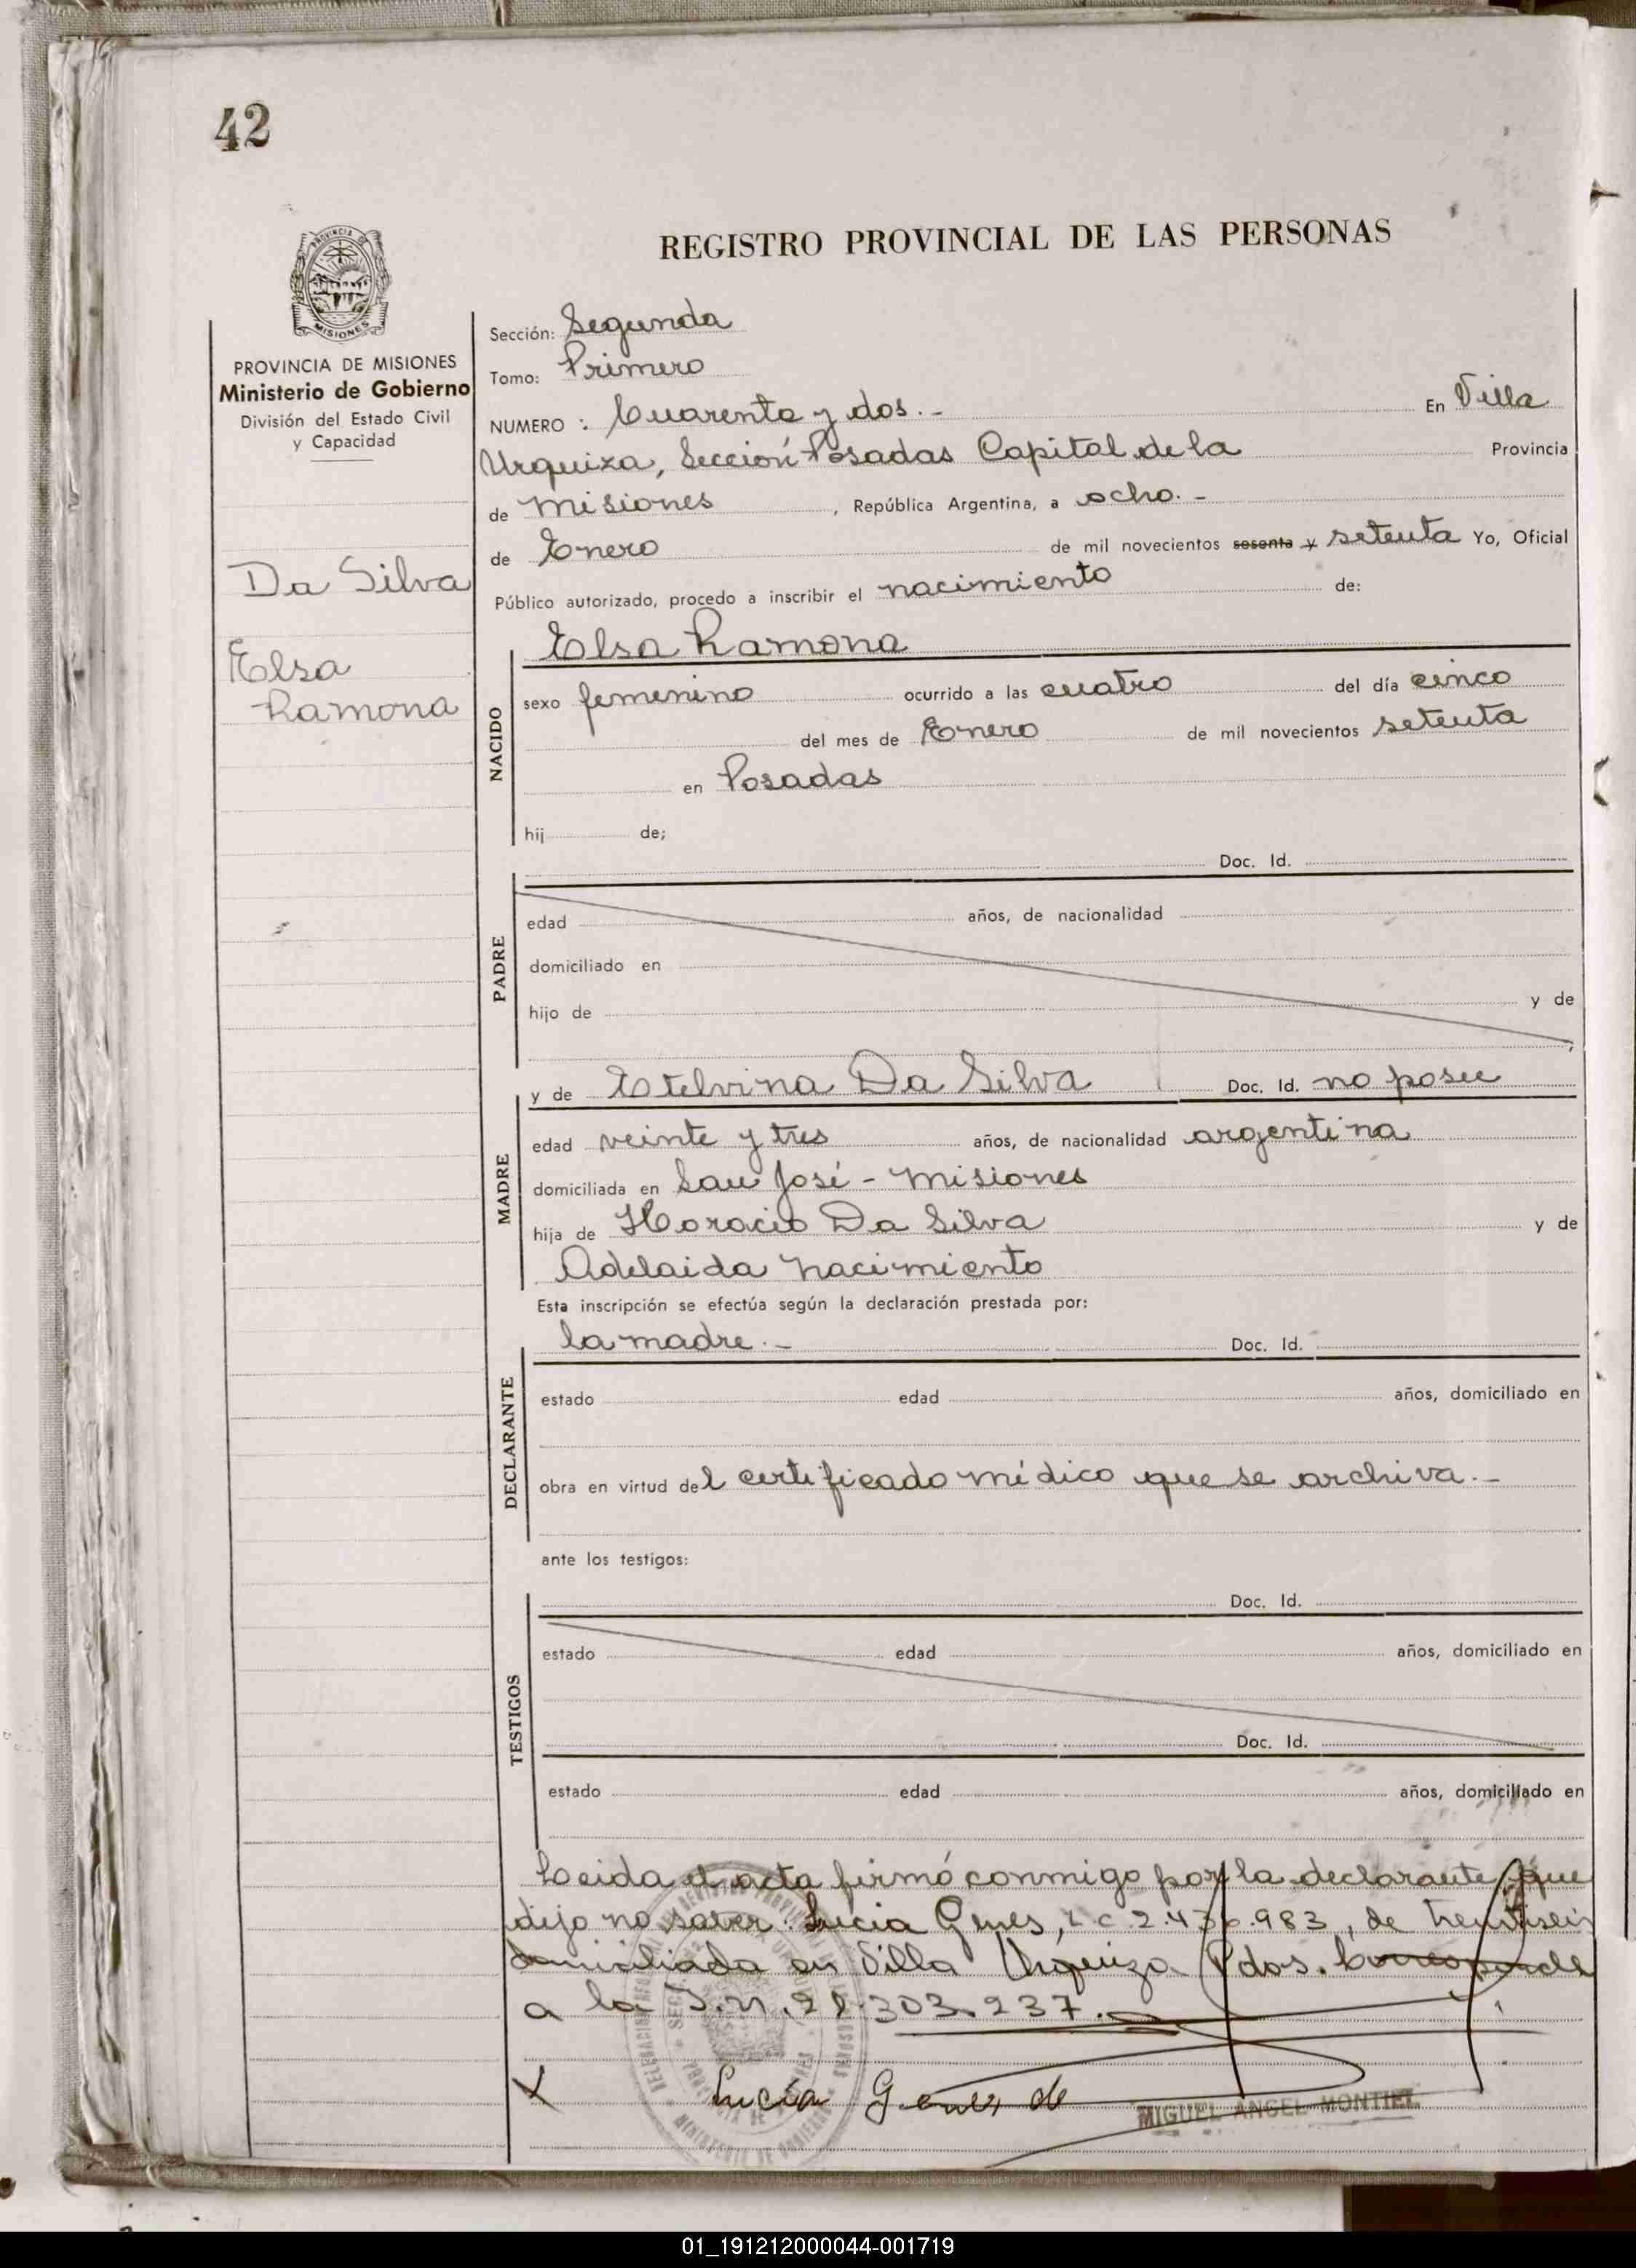 42
REGISTRO PROVINCIAL DE LAS PERSONAS
PROVINCIA DE
MISIONES
PROVINCIA DE MISIONES
Ministerio de Gobierno
División del Estado Civil
y Capacidad
Da Silva
Elsa
Ramona
Sección: Segunda
Tomo: Primero
NUMERO : Cuarenta y dos.- En Villa
Urquiza, Sección Posadas Capital de la Provincia
de Misiones , República Argentina, a ocho.-
de Enero de mil novecientos sesenta y setenta Yo, Oficial
Público autorizado, procedo a inscribir el nacimiento de:
NACIDO
Elsa Ramona
sexo femenino ocurrido a las cuatro del día cinco
del mes de Enero de mil novecientos setenta
en Posadas
hij de;
Doc. Id.
PADRE
edad años, de nacionalidad
domiciliado en
hijo de y de
MADRE
y de Etelvina Da Silva Doc. Id. no posee
edad veinte y tres años, de nacionalidad argentina
domiciliada en San José - Misiones
hija de Horacio Da Silva y de
Adelaida Nacimiento
Esta inscripción se efectúa según la declaración prestada por:
DECLARANTE
la madre.- Doc. Id.
estado edad años, domiciliado en
obra en virtud del certificado médico que se archiva.-
ante los testigos:
TESTIGOS
Doc. Id.
estado edad años, domiciliado en
Doc. Id.
estado edad años, domiciliado en
Leida el acta firmó conmigo por la declarante, que
dijo no saber. Lucia Genes, L.C. 2.436.983, de treintiseis
domiciliada en Villa Urquiza Pdos. Corresponde
a la I.N. 21.303.237.-
Lucía Genes de
MIGUEL ANGEL MONTIEL
01_191212000044-001719